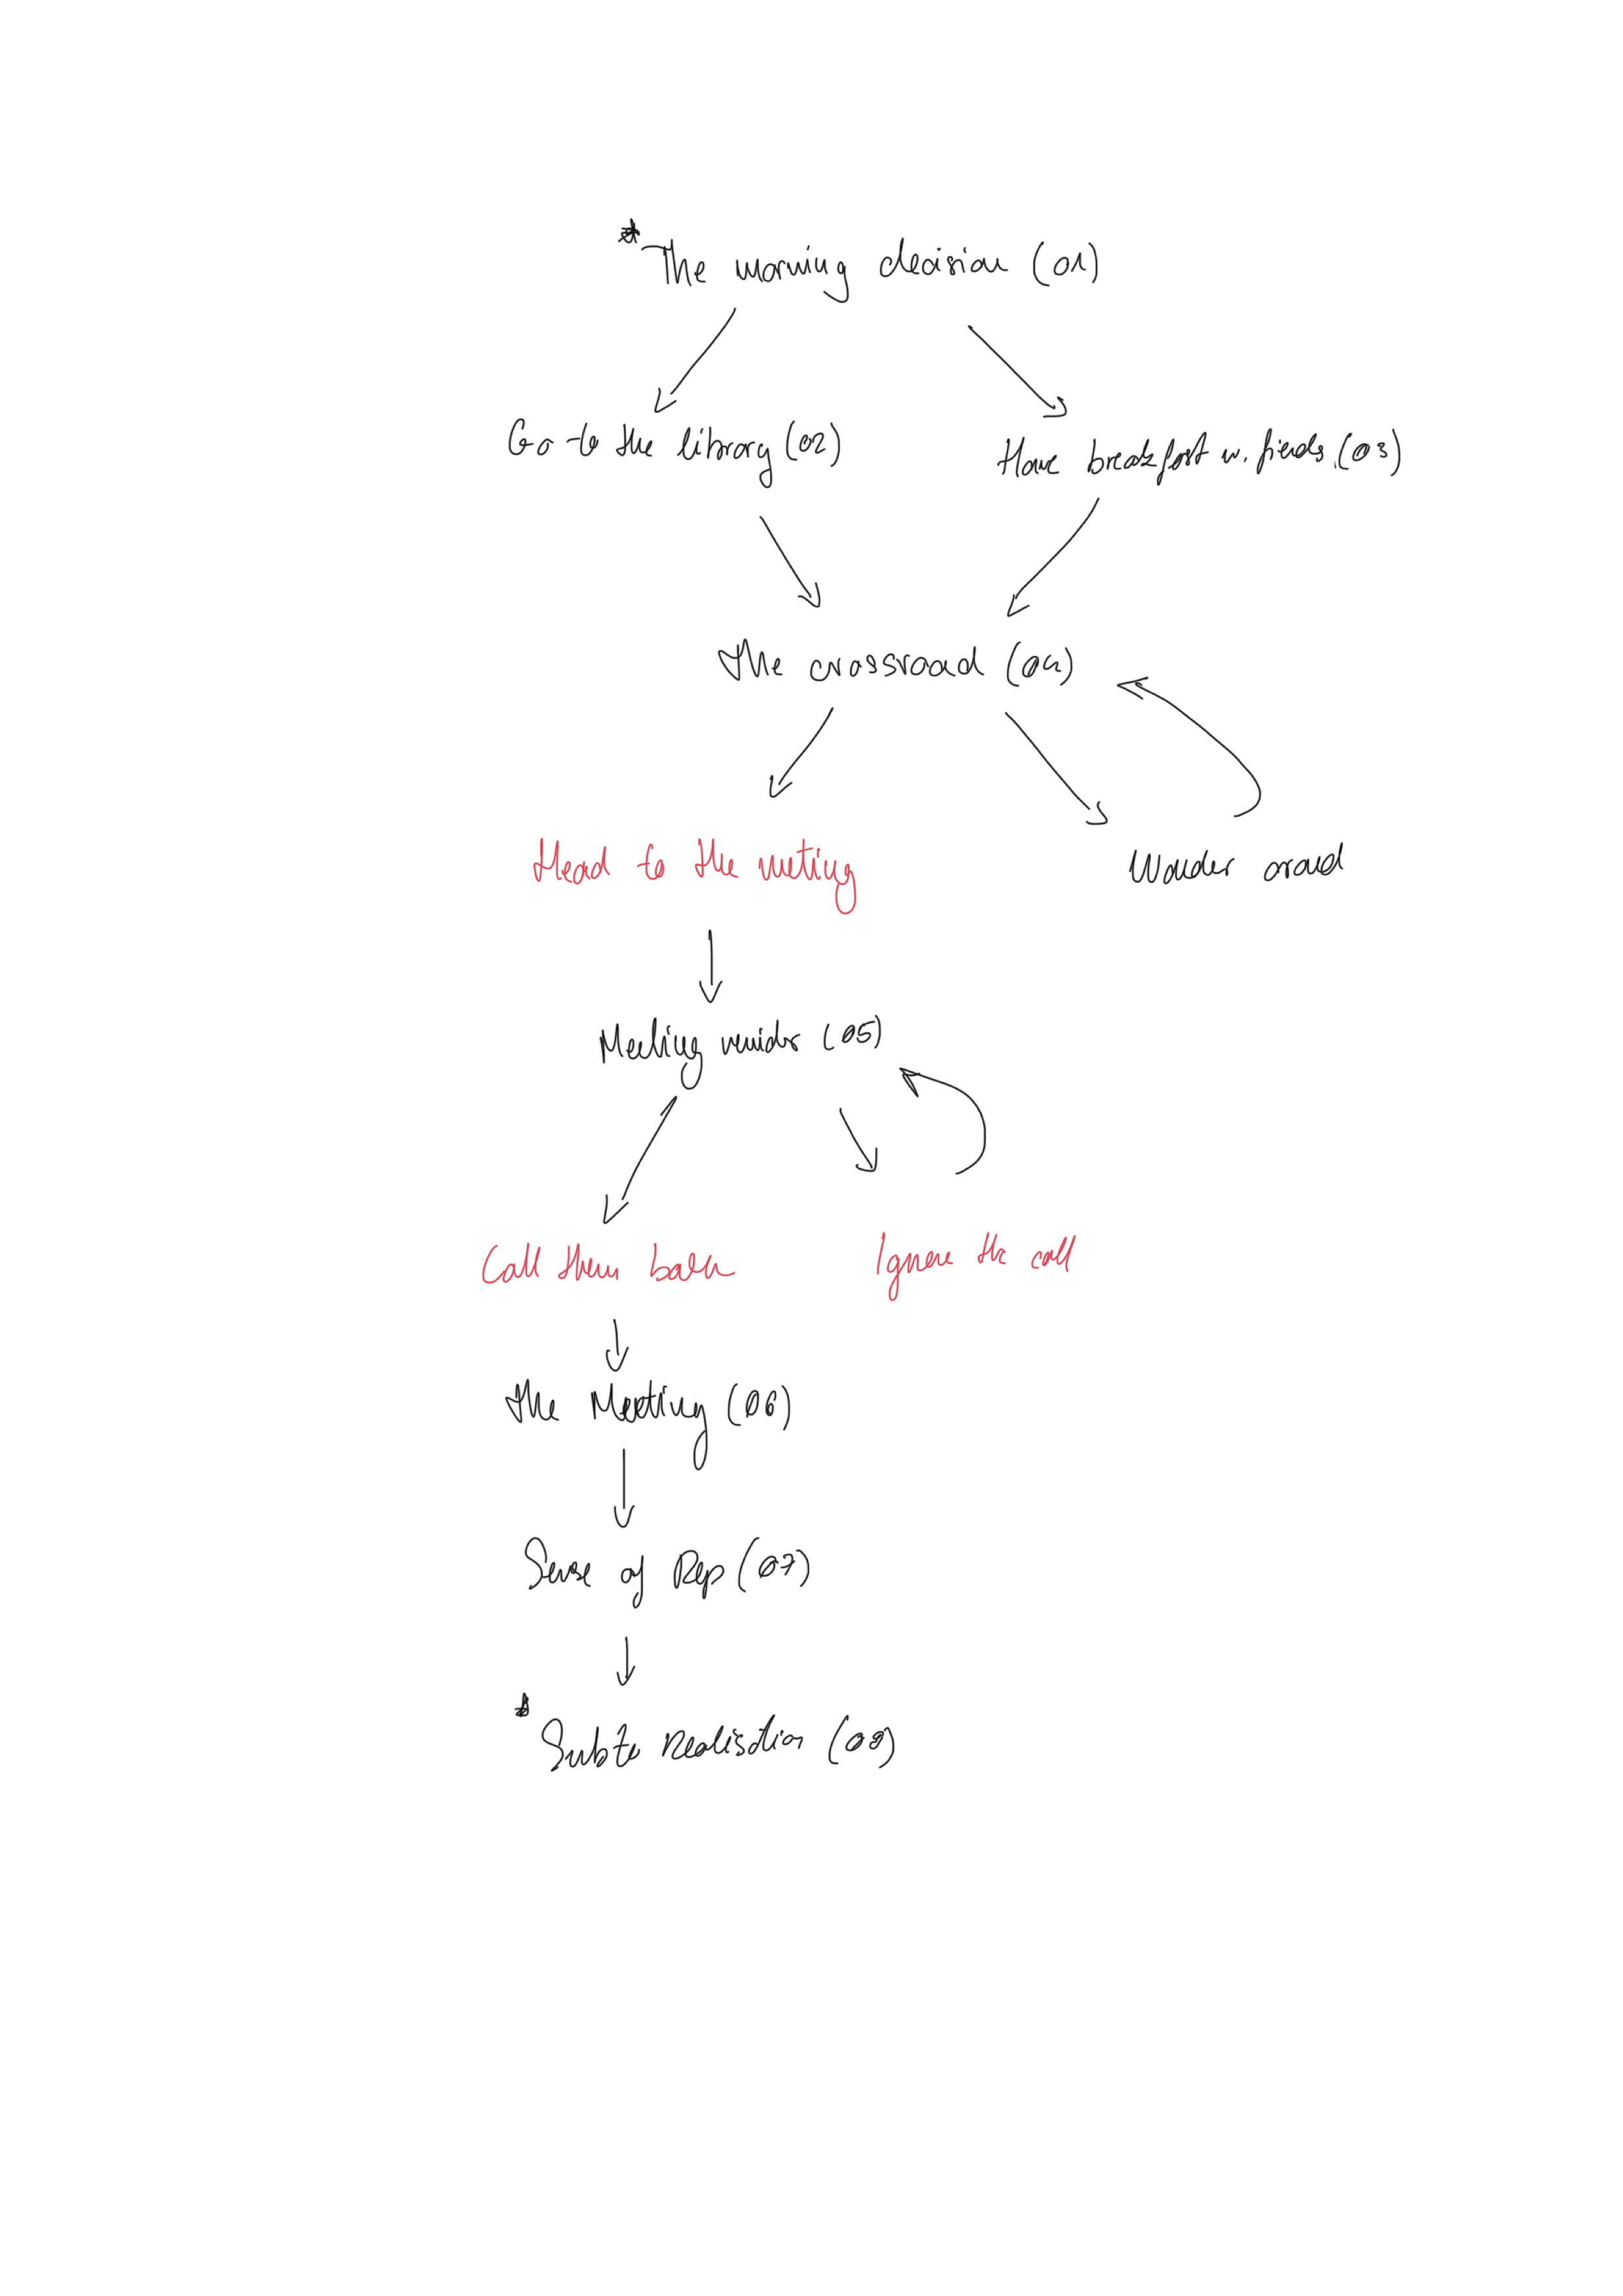 The morning decision (01)
Go to the library (02)
Have breakfast w. friends (03)
the crossroad (04)
Head to the meeting
Wander around
Meeting (05)
Call them back
Ignore the call
the Meeting (06)
Sense of Rep (07)
Subtle Realisation (08)